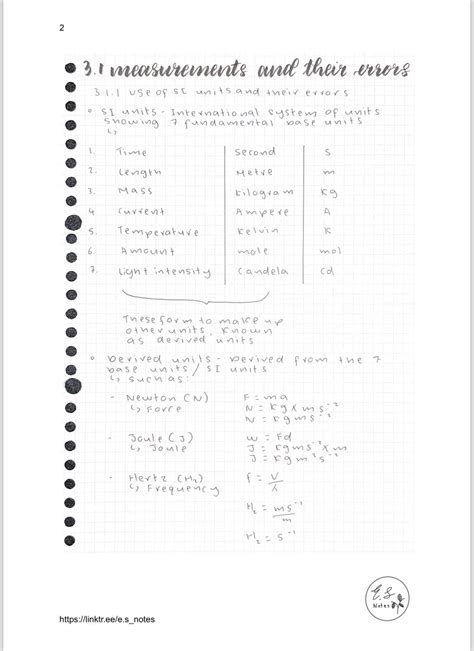 2
3.1 measurements and their errors
3.1.1 use of SI units and their errors
SI units - International system of units
showing 7 fundamental base units
↳
1. Time second s
2. Length Metre m
3. Mass Kilogram Kg
4 Current Ampere A
5. Temperature Kelvin K
6. Amount mole mol
7. Light intensity Candela Cd
These form to make up
other units, known
as derived units
Derived units - Derived from the 7
base units / SI units
↳ such as:
- Newton (N) F = ma
↳ Force N = Kg x ms⁻²
N = Kgms⁻²
- Joule (J) W = Fd
↳ Joule J = Kgms⁻² x m
J = Kgm²s⁻²
- Hertz (Hz) f = V/λ
↳ Frequency
Hz = ms⁻¹/m
Hz = s⁻¹
E.S
Notes
https://linktr.ee/e.s_notes